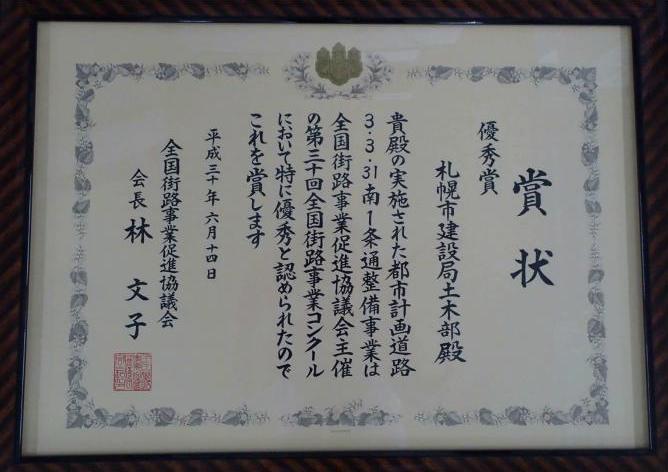 賞状
優秀賞
札幌市建設局土木部殿
貴殿の実施された都市計画道路
3・3・31南1条通整備事業は
全国街路事業促進協議会主催
の第三十回全国街路事業コンクール
において特に優秀と認められたので
これを賞します
平成三十年六月十四日
全国街路事業促進協議会
会長 林 文子